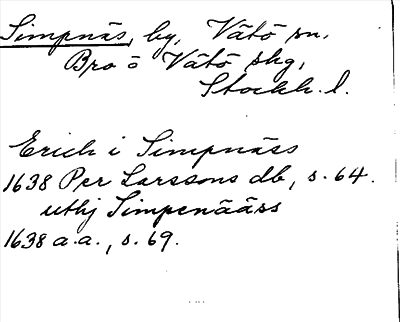 Simpnäs, by, Vätö sn.
Bro o Vätö skg,
Stockh. l.
Erich i Simpnäss
1638 Per Larssons db, s. 64.
uthj Simpenääss
1638 a.a., s. 69.